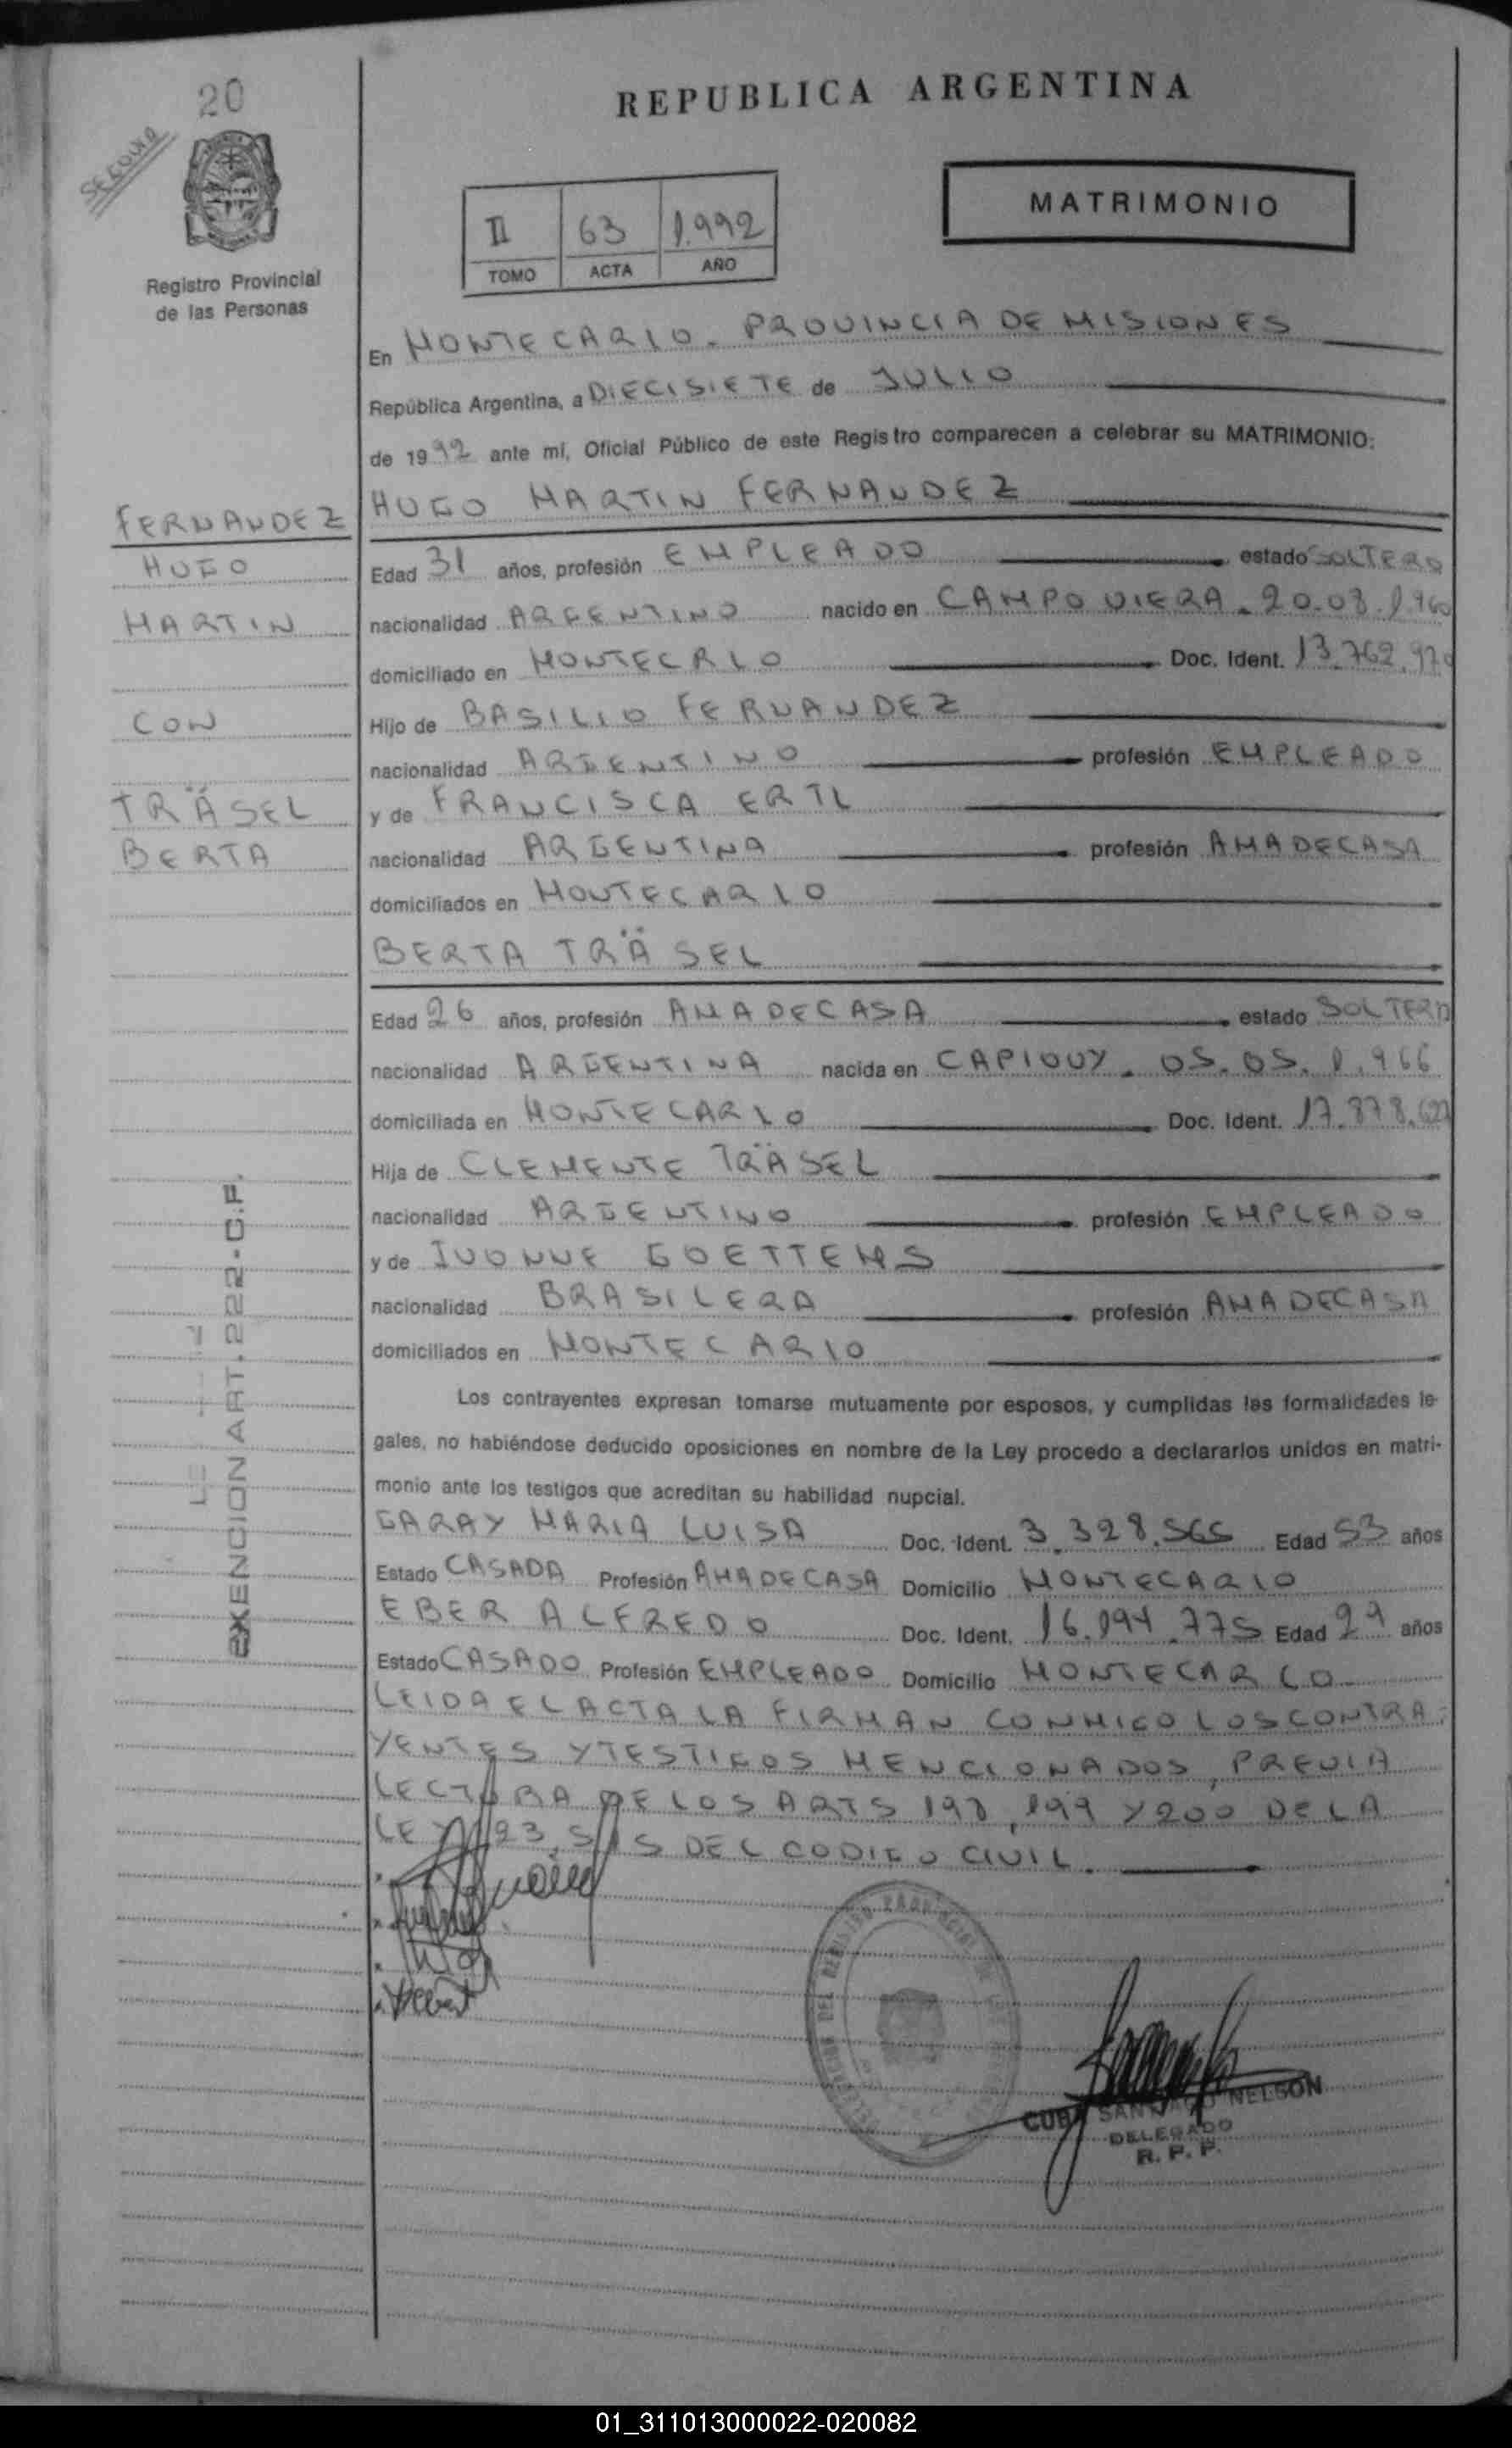 20
SEGOVIA
REPUBLICA ARGENTINA
MATRIMONIO
II 63 1.992
TOMO ACTA AÑO
Registro Provincial
de las Personas
En MONTECARLO. PROVINCIA DE MISIONES
República Argentina, a DIECISIETE de JULIO
de 1992 ante mí, Oficial Público de este Registro comparecen a celebrar su MATRIMONIO:
HUGO MARTIN FERNANDEZ
FERNANDEZ
HUGO
MARTIN
CON
TRÄSEL
BERTA
Edad 31 años, profesión EMPLEADO estado SOLTERO
nacionalidad ARGENTINO nacido en CAMPO VIERA. 20.08.1.960
domiciliado en MONTECRLO Doc. Ident. 13.762.970
Hijo de BASILIO FERNANDEZ
nacionalidad ARGENTINO profesión EMPLEADO
y de FRANCISCA ERTL
nacionalidad ARGENTINA profesión AMADECASA
domiciliados en MONTECARLO
BERTA TRÄSEL
Edad 26 años, profesión AMADECASA estado SOLTERA
nacionalidad ARGENTINA nacida en CAPIOUY. 05.05.1.966
domiciliada en MONTECARLO Doc. Ident. 17.878.
Hija de CLEMENTE TRÄSEL
nacionalidad ARGENTINO profesión EMPLEADO
y de IVONNE GOETTEMS
nacionalidad BRASILERA profesión AMADECASA
domiciliados en MONTECARLO
EXENCION ART. 222-C.F.
Los contrayentes expresan tomarse mutuamente por esposos, y cumplidas las formalidades le-
gales, no habiéndose deducido oposiciones en nombre de la Ley procedo a declararlos unidos en matri-
monio ante los testigos que acreditan su habilidad nupcial.
GARAY MARIA LUISA Doc. Ident. 3.328.565 Edad 53 años
Estado CASADA Profesión AMADECASA Domicilio MONTECARLO
EBER ALFREDO Doc. Ident. 16.194.775 Edad 29 años
Estado CASADO Profesión EMPLEADO Domicilio MONTECARLO
LEIDA EL ACTA LA FIRMAN CONMIGO LOS CONTRA-
YENTES Y TESTIGOS MENCIONADOS, PREVIA
LECTURA DE LOS ARTS 198, 199 Y 200 DE LA
LEY 23.515 DEL CODIGO CIVIL.
CUBA SANTIAGO NELSON
DELEGADO
R. P. P.
01_311013000022-020082